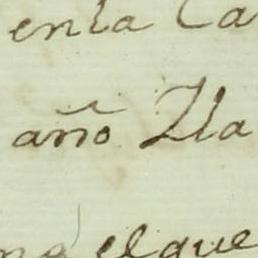 en la Ca
año Ila
el que